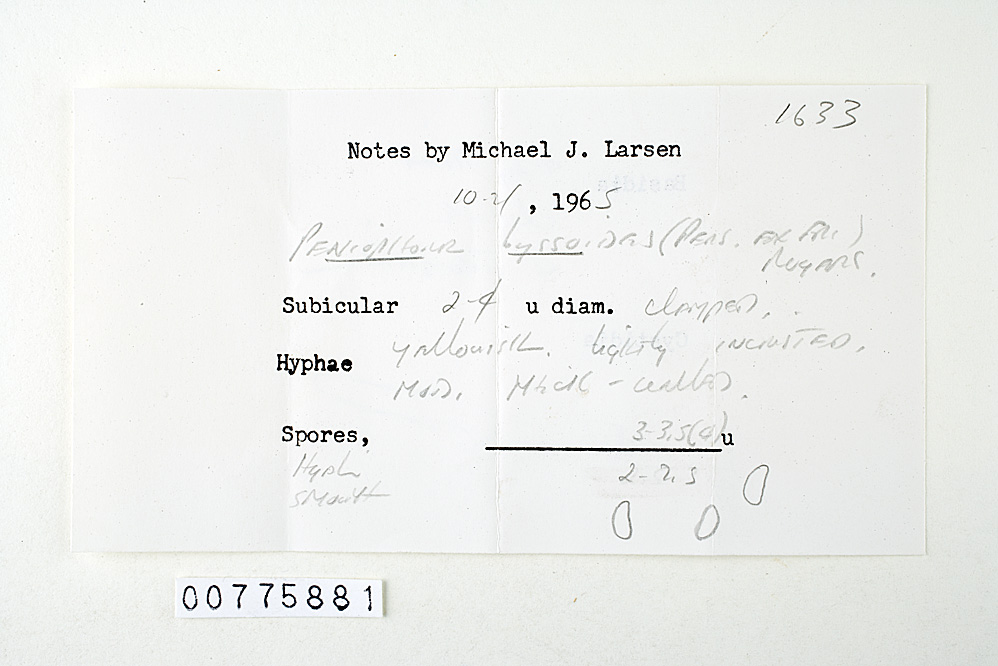 1633
Notes by Michael J. Larsen
10-21, 1965
Peniophora byssoides (Pers. ex Fr.)
Subicular 2-4 u diam. clamped,
Hyphae yellowish. lightly incrusted,
Mod. thick-walled.
Spores, 3-3.5(4) u
Hyal. 2-2.5
smooth
00775881